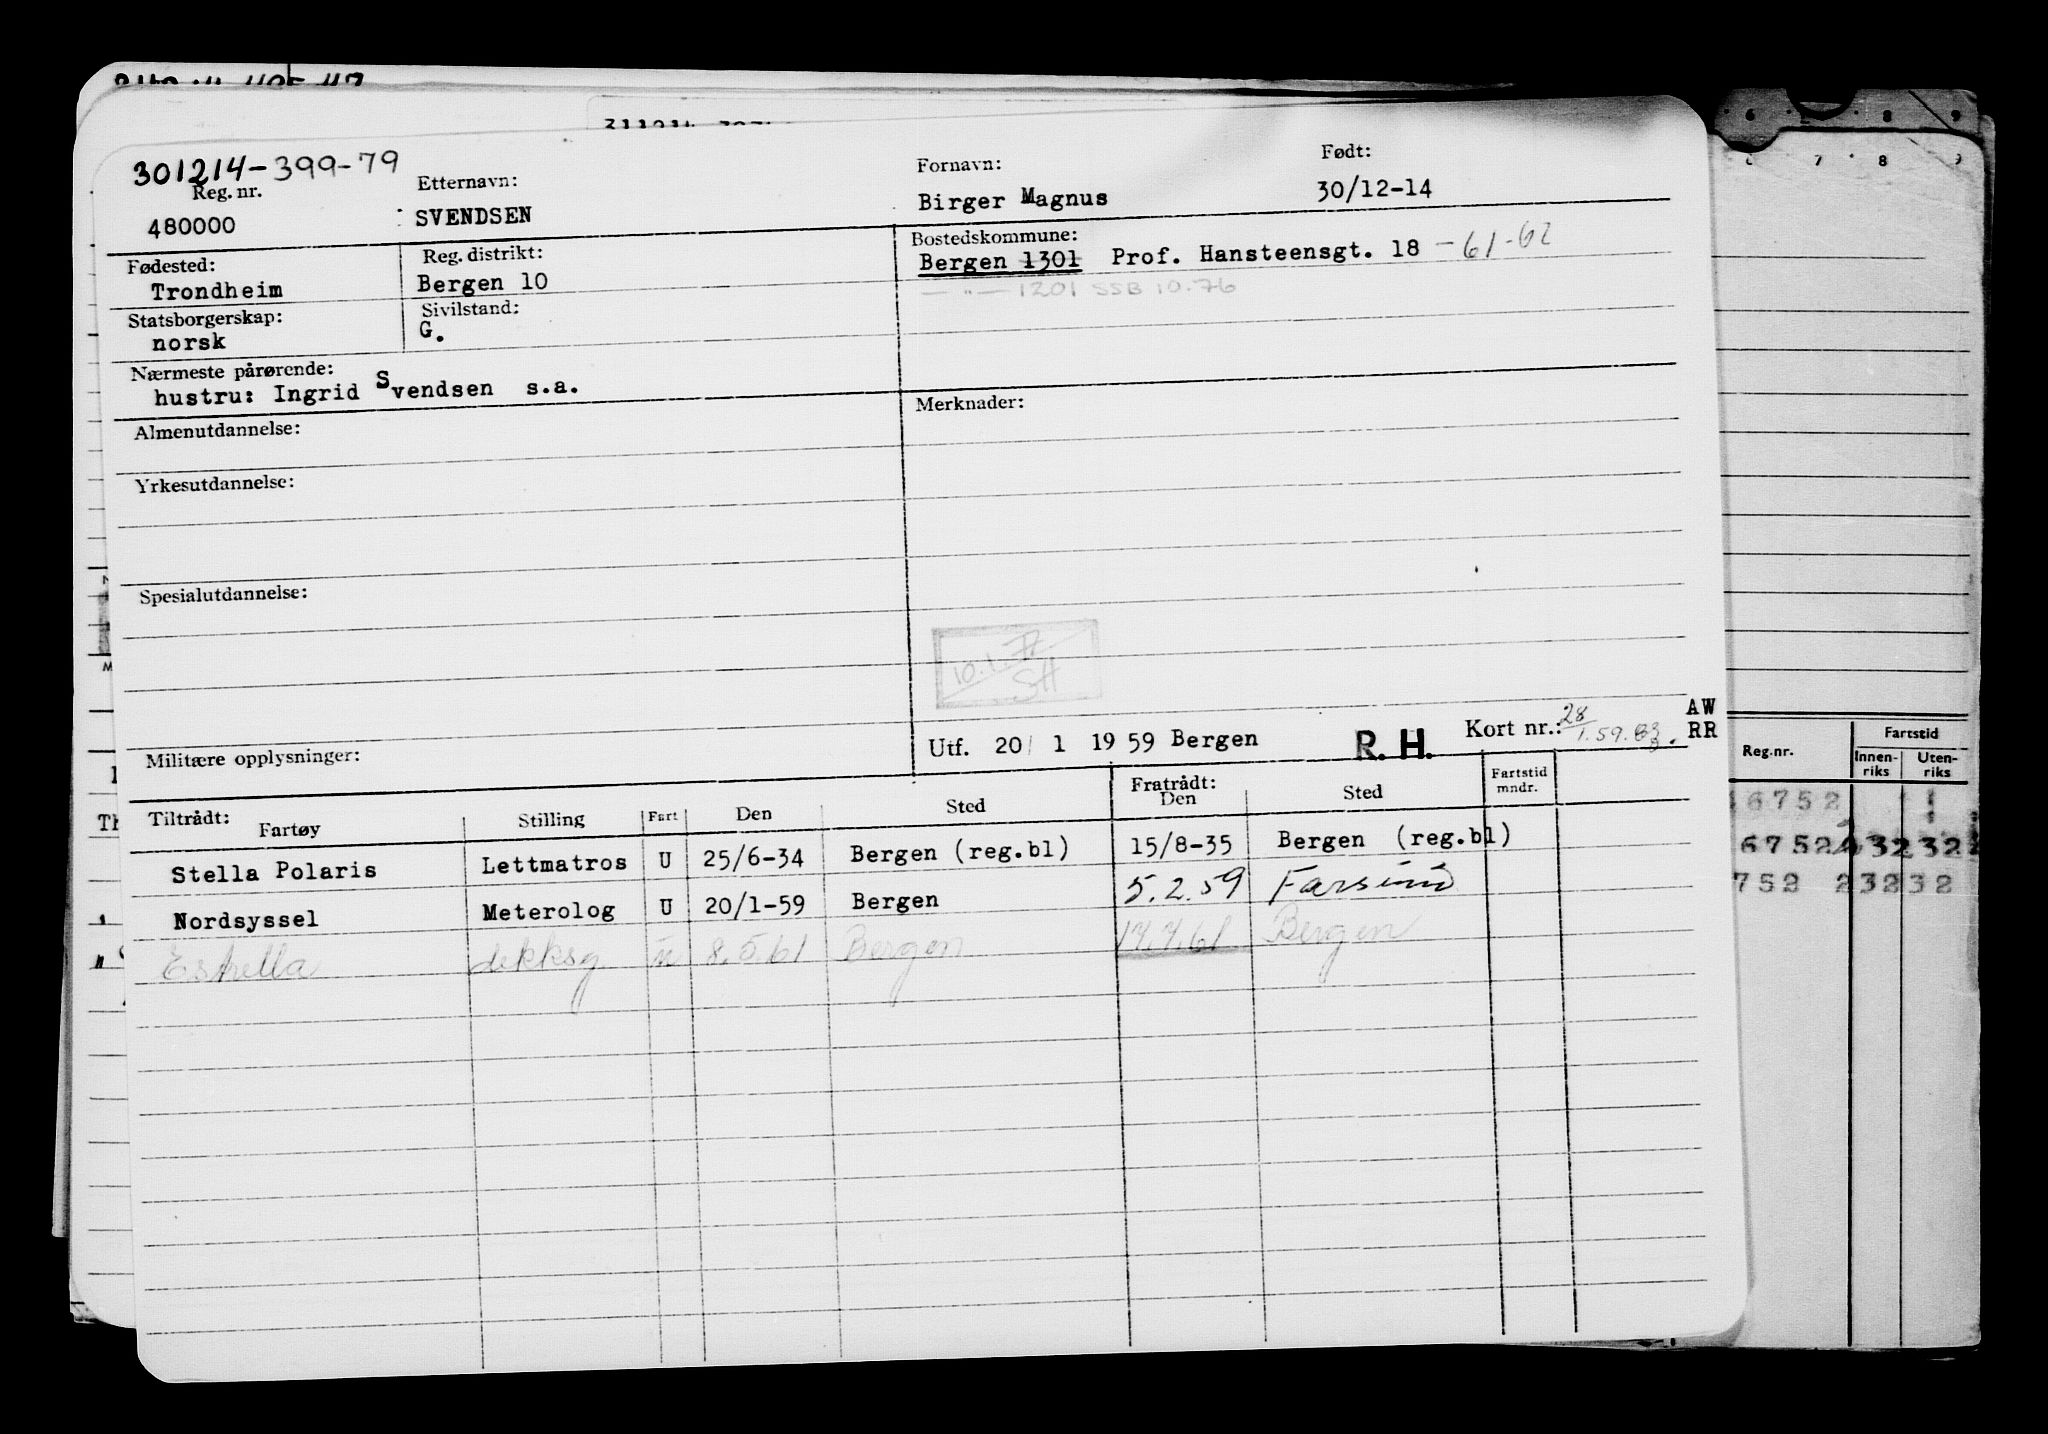 301214-399-79
Reg. nr. Etternavn: Fornavn: Født:
480000 SVENDSEN Birger Magnus 30/12-14
Fødested: Reg. distrikt: Bostedskommune:
Trondheim Bergen 10 Bergen 1301 Prof. Hansteensgt. 18 - 61-62
— " — 1201 SSB 10.76
Statsborgerskap: Sivilstand:
norsk G.
Nærmeste pårørende:
hustru: Ingrid Svendsen s.a.
Almenutdannelse: Merknader:
Yrkesutdannelse:
Spesialutdannelse:
10.1.
SH
Militære opplysninger: Utf. 20/ 1 1959 Bergen R. H. Kort nr.: 28/1.59. AW
RR
Tiltrådt: Fratrådt:
Fartøy Stilling Fart Den Sted Den Sted Fartstid mndr.
Stella Polaris Lettmatros U 25/6-34 Bergen (reg.bl) 15/8-35 Bergen (reg.bl)
Nordsyssel Meterolog U 20/1-59 Bergen 5.2.59 Farsund
Estrella dekksg u 8.5.61 Bergen Bergen
6 7 8 9
Reg.nr. Fartstid
Innen-riks Uten-riks
6752
6752 232 232
752 232 32